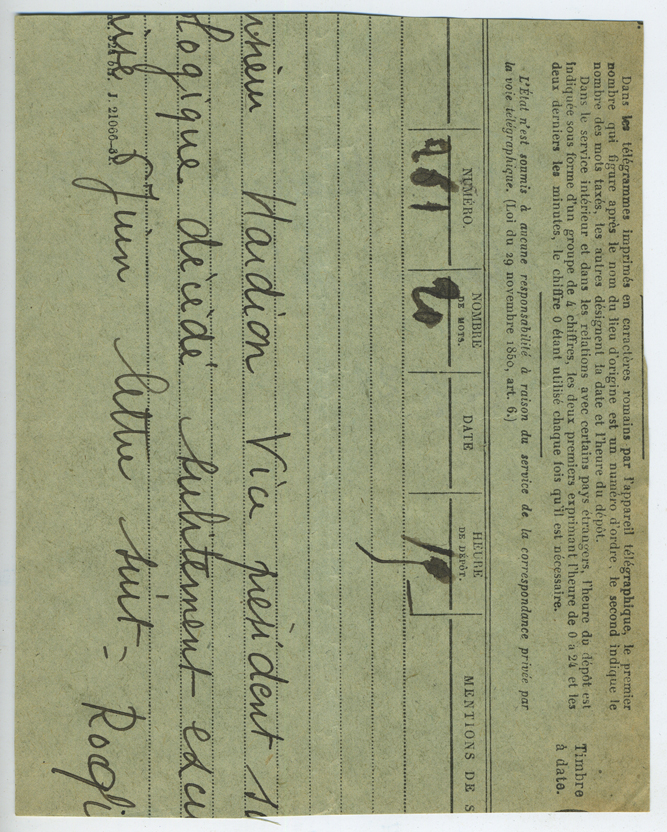 Dans les télégrammes imprimés en caractères romains par l'appareil télégraphique, le premier
nombre qui figure après le nom du lieu d'origine est un numéro d'ordre, le second indique le
nombre des mots taxés, les autres désignent la date et l'heure du dépôt.
Dans le service intérieur et dans les relations avec certains pays étrangers, l'heure du dépôt est
indiquée sous forme d'un groupe de 4 chiffres, les deux premiers exprimant l'heure de 0 à 24 et les
deux derniers les minutes, le chiffre 0 étant utilisé chaque fois qu'il est nécessaire.
Timbre
à date.
L'État n'est soumis à aucune responsabilité à raison du service de la correspondance privée par
la voie télégraphique. (Loi du 29 novembre 1850, art. 6.)
NUMÉRO.
NOMBRE
DE MOTS.
DATE
HEURE
DE DÉPÔT.
MENTIONS DE S
20
Hardion Vice président
logique décédé subitement
Juin lettre suit =
J. 21066-31.